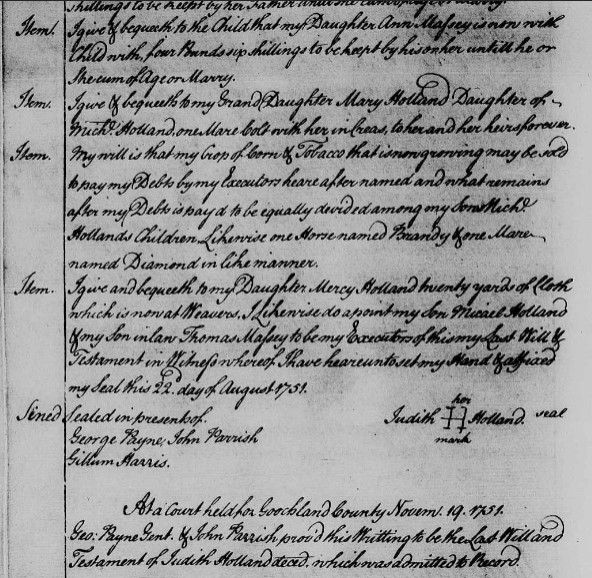 shillings to be keept by her Father untill she cum of age or Marry.
Item. I give & bequeeth to the Child that my Daughter Ann Massey is now with
Child with, four Punds six shillings to be keept by his or her untill he or
She cum of Age or Marry.
Item. I give & bequeeth to my Grand Daughter Mary Holland Daughter of
Michl. Holland, one Mare Colt with her increas, to her and her heirs forever.
Item. My will is that my Crop of Corn & Tobacco that is now growing may be sold
to pay my Debts by my Executors heare after named and what remains
after my Debts is pay'd to be equally divided among my Son Michl.
Hollands Children, Likewise one Horse named Brandy & one Mare
named Diamond in like manner.
Item. I give and bequeeth to my Daughter Mercy Holland twenty yards of Cloth
which is now at Weavers, I Likewise do apoint my Son Micael Holland
& my Son in law Thomas Massey to be my Executors of this my Last Will &
Testament in Witness whereof I have hereunto set my Hand & affixed
my Seal this 22d. day of August 1751.
Sined Sealed in presents of. Judith her H mark Holland. seal
George Payne, John Parrish
Gillum Harris.
At a Court held for Goochland County Novem. 19. 1751.
Geo: Payne Gent. & John Parrish prov'd this Writting to be the Last Will and
Testament of Judith Holland deced. which was admitted to Record.